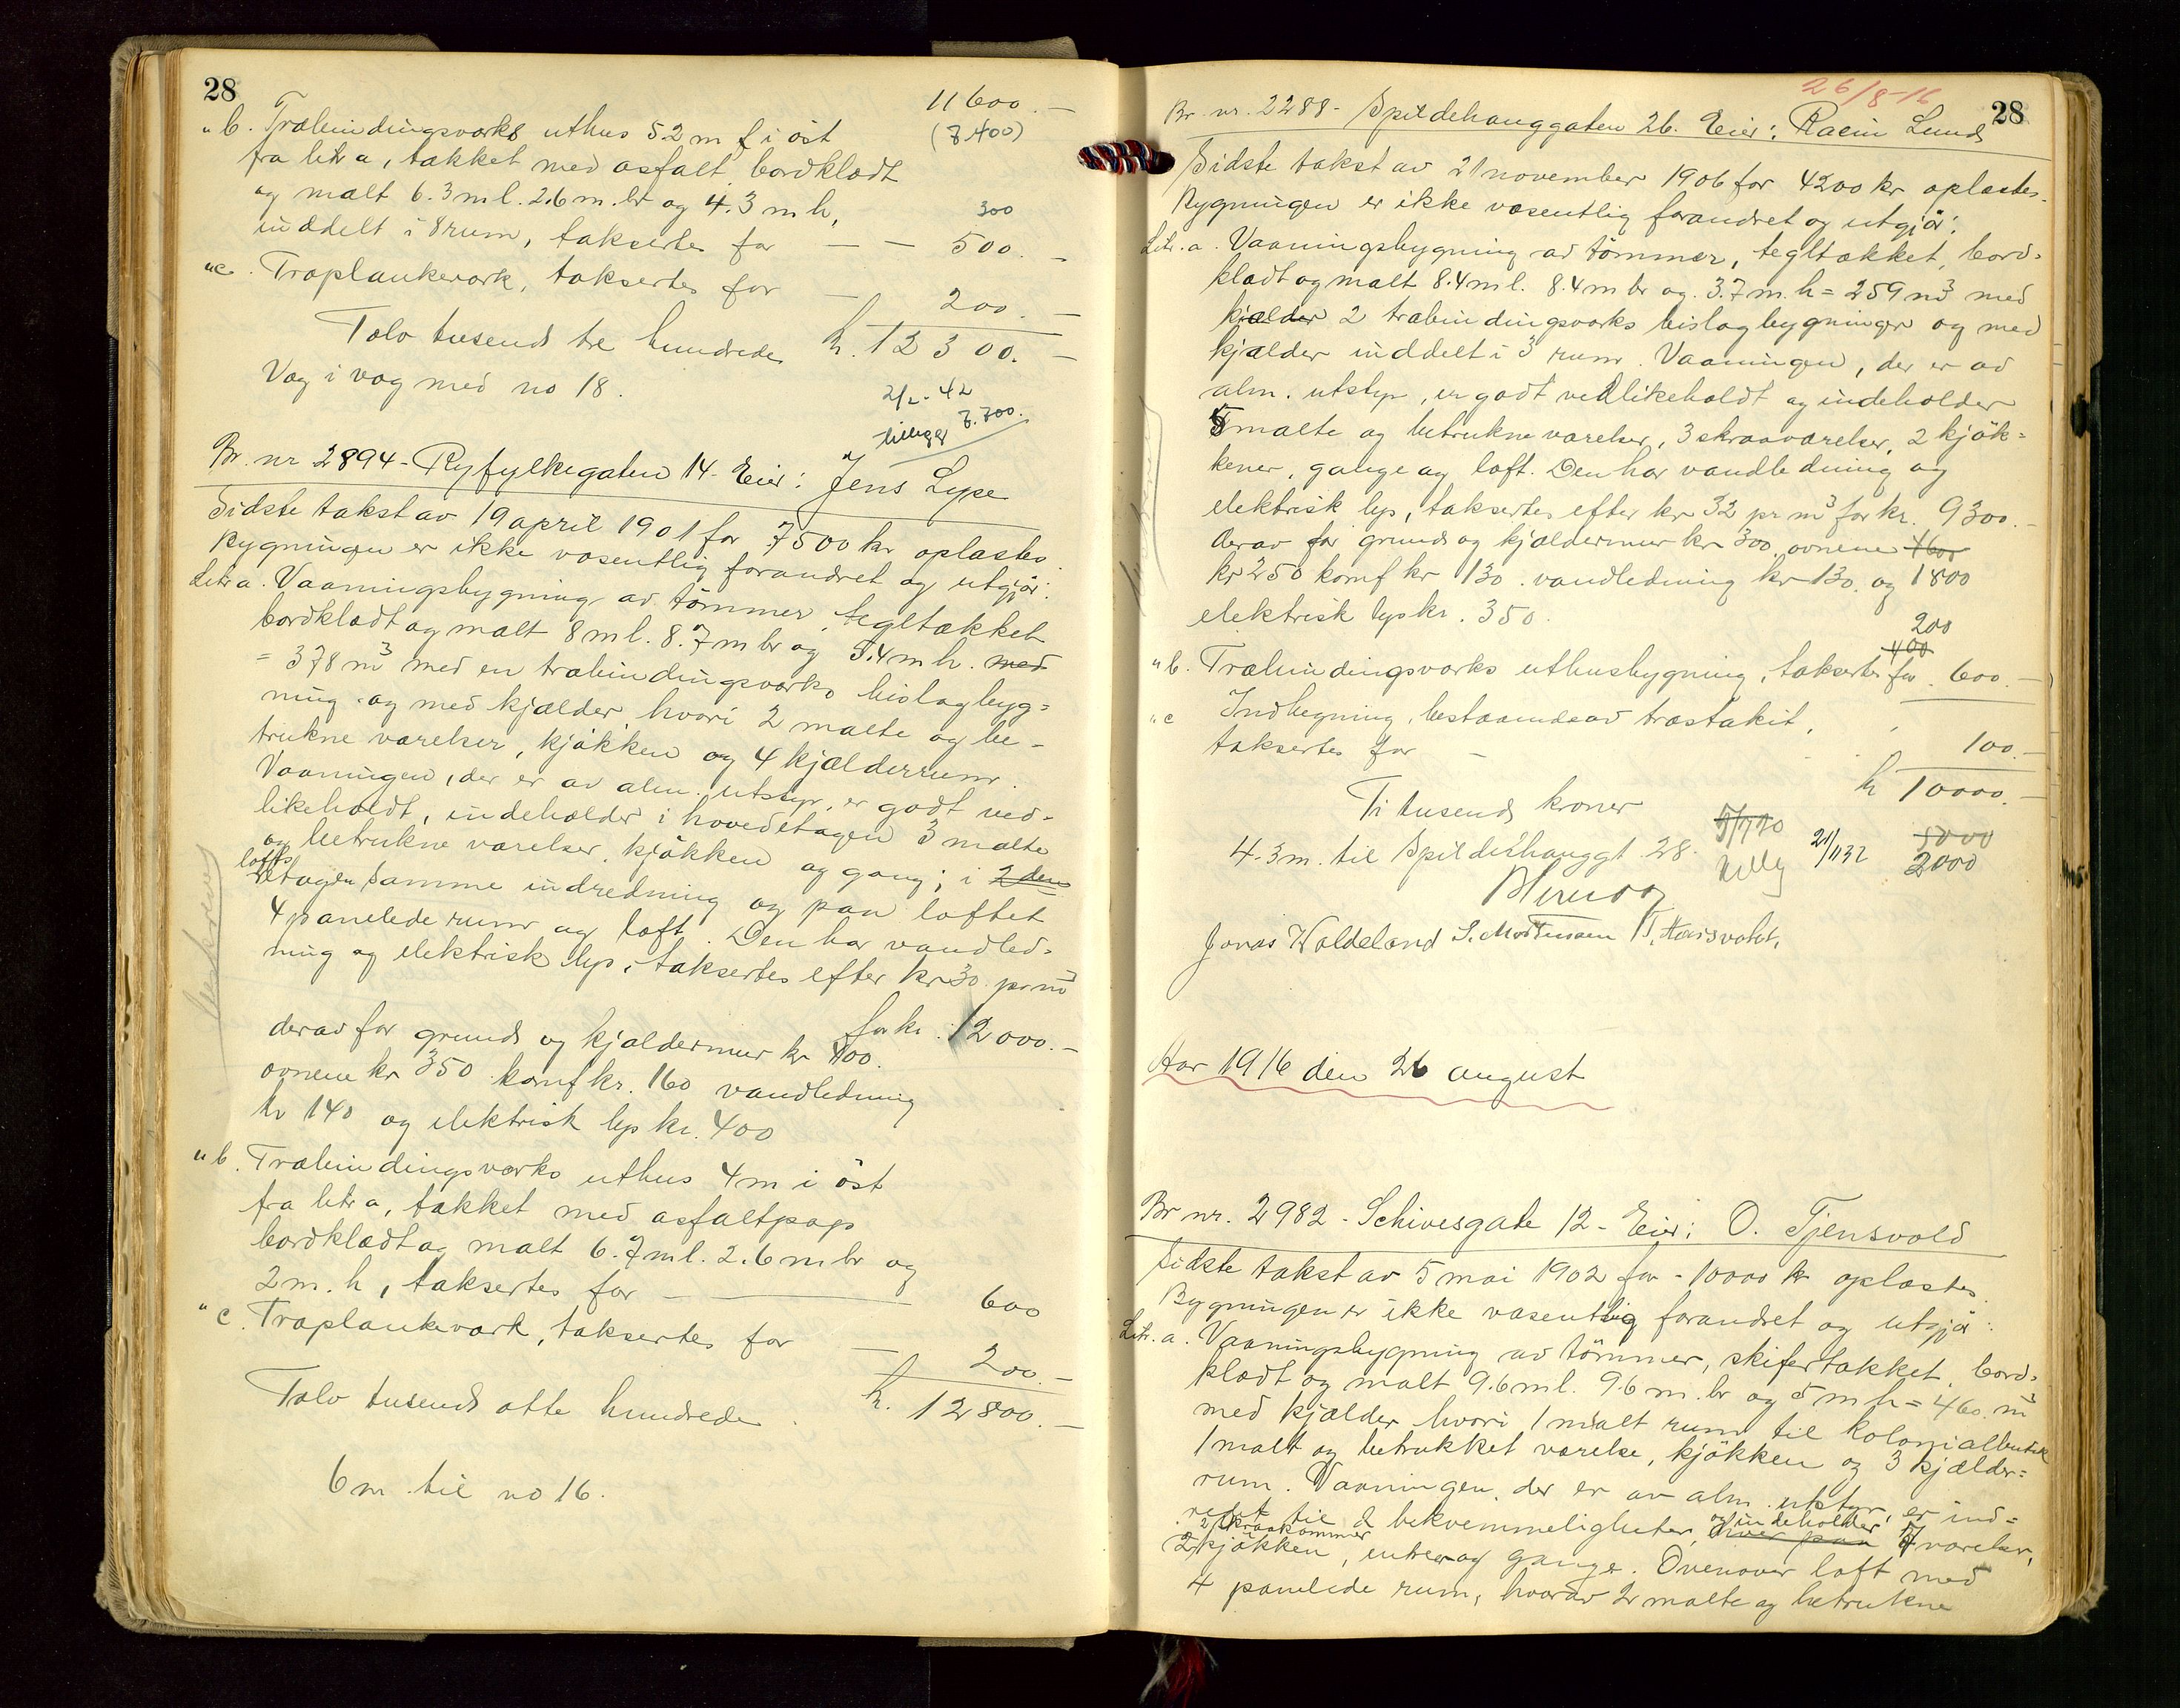 28
11600.—
(7400)
"b. Træbindingsværks uthus 5.2 m f i öst
fra litr a, tækket med asfalt, bordklædt
og malt 6.3 m l. 2.6 m. br og 4.3 m h,
300
inddelt i 8 rum, taksertes for — — 500.—
"c. Træplankeværk, taksertes for — 200.—
Tolv tusend tre hundrede kr. 12300.—
Væg i væg med no 18.
2/2-42
tillegg 7.700.
Br. nr 2894 - Ryfylkegaten 14. Eier: Jens Lype
Sidste takst av 19 april 1901 for 7500 kr oplæstes.
Bygningen er ikke væsentlig forandret og utgjør:
Litr a. Vaaningsbygning av tömmer, tegltækket
bordklædt og malt 8 m l. 8.7 m br og 5.4 m h. med
= 378 m³ med en træbindingsværks bislagbyg=
ning og med kjælder, hvori 2 malte og be-
trukne værelser, kjökken og 4 kjælderrum.
Vaaningen, der er av alm. utstyr, er godt ved-
likeholdt, indeholder i hovedetagen 3 malte
og betrukne værelser, kjökken og gang; i 2den
lofts
etagen samme indredning og paa loftet
4 panelede rum og loft. Den har vandled=
ning og elektrisk lys, taksertes efter kr 30 pr m³
for kr. 12000.—
derav for grund og kjældermur kr 400.
ovnene kr 350 komf kr. 160 vandledning
kr 140 og elektrisk lys kr. 400
"b. Træbindingsværks uthus 4 m i öst
fra litr a, tækket med asfaltpap
bordklædt og malt 6.7 m l. 2.6 m br og
2 m. h, taksertes for — 600
"c. Træplankeværk, taksertes for — 200.—
Tolv tusend otte hundrede kr. 12800.—
6 m til no 16.
26/8-16
28
Br. nr. 2288 - Spildehauggaten 26. Eier: Rasin Lund
Sidste takst av 21 november 1906 for 4200 kr oplæstes.
Bygningen er ikke væsentlig forandret og utgjör:
Litr. a. Vaaningsbygning av tömmer, tegltækket, bord=
klædt og malt 8.4 m l. 8.4 m br og 3.7 m. h = 259 m³ med
kjælder 2 træbindingsværks bislagbygninger og med
kjælder inddelt i 3 rum. Vaaningen, der er av
alm. utstyr, er godt vedlikeholdt og indeholder
5 malte og betrukne værelser, 3 skraaværelser, 2 kjök=
kener, gange og loft. Den har vandledning og
elektrisk lys, taksertes efter kr 32 pr m³ for kr. 9300.—
derav for grund og kjældermur kr 300 ovnene 4600
kr 250 komf kr 130. vandledning kr 130. og 1800
elektrisk lys kr. 350.
200
400
"b. Træbindingsværks uthusbygning, taksertes for 600.—
"c Indhegning, bestaaende av træstakit,
taksertes for — 100.—
kr 10000.—
Ti tusend kroner
4.3 m. til Spildehauggt. 28.
21/1132
5000
2000
Jonas Waldeland S. Mortensen
Aar 1916 den 26 august
Br nr. 2982 - Schivesgate 12 - Eier: O. Tjensvold
Sidste takst av 5 mai 1902 for - 10000 kr oplæstes.
Bygningen er ikke væsentlig forandret og utgjör:
Litr. a. Vaaningsbygning av tömmer, skifertækket, bord=
klædt og malt 9.6 m l. 9.6 m. br og 5 m h = 460. m³
med kjælder hvori 1 malt rum til kolonialbutik
1 malt og betrukket værelse, kjökken og 3 kjælder=
rum. Vaaningen, der er av alm. utstyr, er ind=
redet til 2 bekvemmeligheter, og indeholder hver paa 7 værelser,
2 skraakammer
2 kjökken, entreer og gange. Ovenover loft med
4 panelede rum, hvorav 2 malte og betrukne